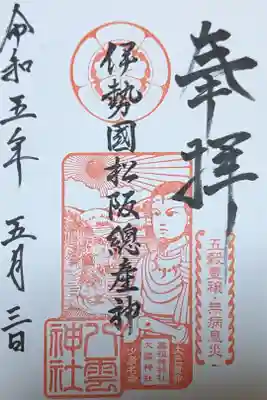 奉拝
五穀豊穣・無病息災
伊勢國松阪總産神
八雲神社
令和五年 五月 三日